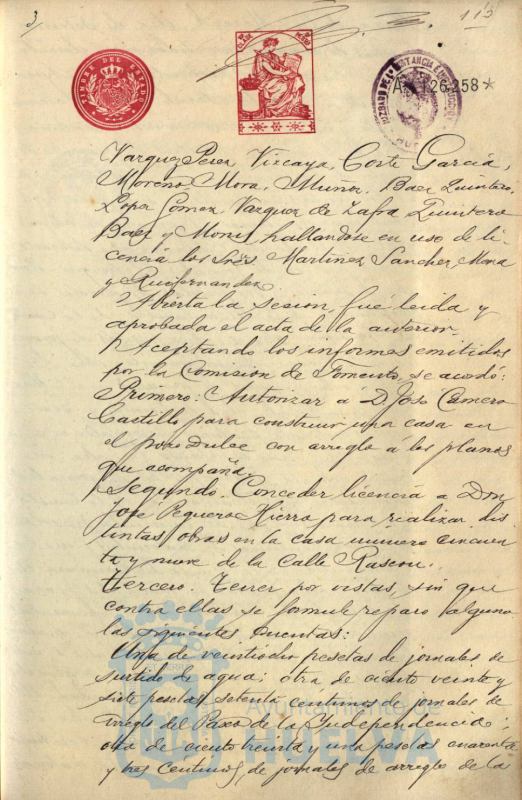 3,
113
TIMBRE DEL ESTADO
CLASE
JUZGADO DE 1ª INSTANCIA É INSTRUCCION
A 126,258*
Vazquez Perez, Vizcaya, Corte Garcia,
Moreno, Mora, Muñoz, Baez Quintero,
Lopez Gomez, Vazquez de Zafra, Quintero
Baez y Monis, hallandose en uso de li-
cencia los Sres Martinez Sanchez, Mora
y Ruifernandez.
Abierta la sesion, fué leida y
aprobada el acta de la anterior.
Aceptando los informes emitidos
por la Comision de Fomento, se acordó:
Primero: Autorizar á D. José Camero
Castillo para construir una casa en
el pozo Dulce con arreglo á los planos
que acompaña.
Segundo. Conceder licencia a Don
José Peguero Hierro para realizar dis
tintas obras en la casa numero cincuen
ta y nueve de la Calle Rascon.
Tercero. Tener por vistas, sin que
contra ellas se formule reparo alguno
las siguientes cuentas:
Una de veintiocho pesetas de jornales de
surtido de agua; otra de ciento veinte y
siete pesetas setenta centimos de jornales de
arreglo del Paseo de la Independencia;
otra de ciento treinta y una pesetas cuarenta
y tres centimos, de jornales de arreglo de la
Ayuntamiento de
HUELVA